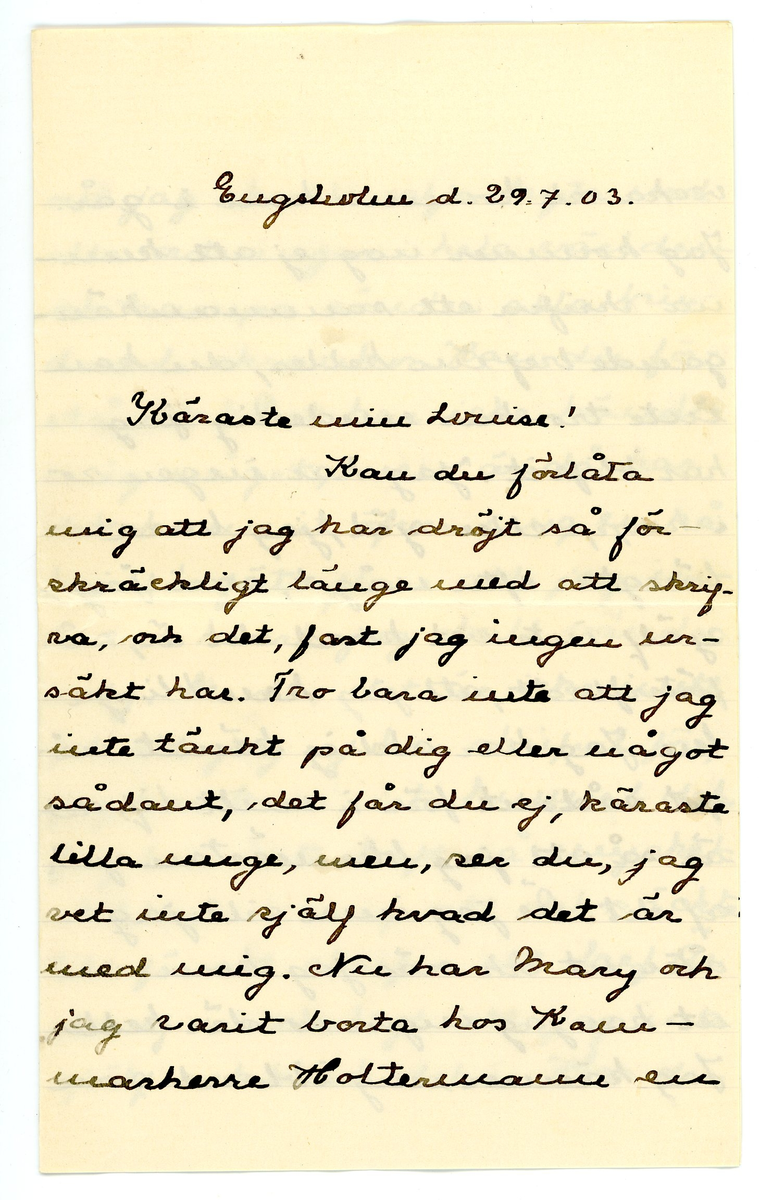 Engsholm d. 29.7.03.
Käraste min Louise!
Kan du förlåta
mig att jag har dröjt så för-
skräckligt länge med att skrif-
va, och det, fast jag ingen ur-
säkt har. Tro bara inte att jag
inte tänkt på dig eller något
sådant, det får du ej, käraste
lilla unge, men, ser du, jag
vet inte själf hvad det är
med mig. Nu har Mary och
jag varit borta hos Kam-
markerre Holtermann en